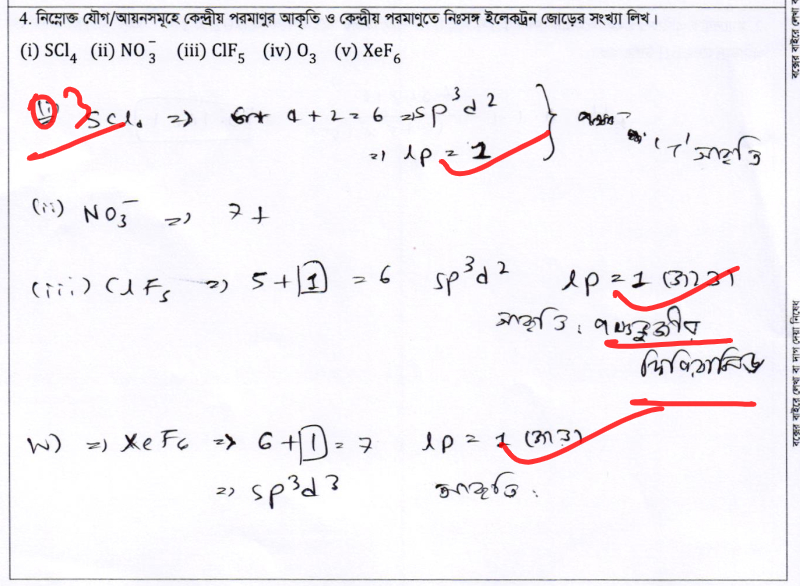 4. নিম্নোক্ত যৌগ/আয়নসমূহে কেন্দ্রীয় পরমাণুর আকৃতি ও কেন্দ্রীয় পরমাণুতে নিঃসঙ্গ ইলেকট্রন জোড়ের সংখ্যা লিখ।
(i) SCl₄ (ii) NO₃⁻ (iii) ClF₅ (iv) O₃ (v) XeF₆
03
SCl₄ => 4 + 2 = 6 => sp³d²
=> lp = 1
'T' আকৃতি
(ii) NO₃⁻ => 7 +
(iii) ClF₅ => 5 + 1 = 6 sp³d² lp = 1 জোড়া
আকৃতি :
=> XeF₆ => 6 + 1 = 7 lp = 1 জোড়া
=> sp³d³ আকৃতি :
বক্সের বাইরে লেখা বা দাগ দেয়া নিষেধ
বক্সের বাইরে লেখা ব